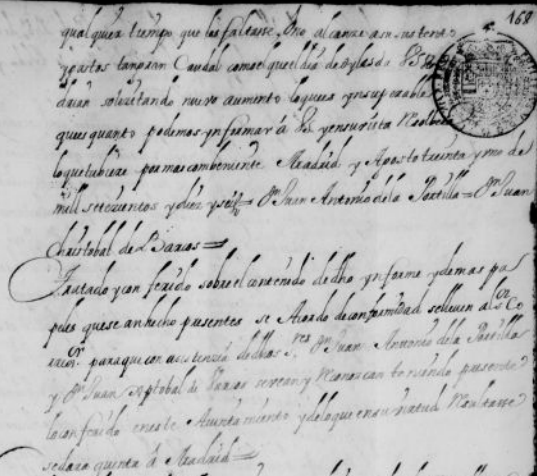 168
qualquier tiempo que les faltasse, o no alcanze a su sustento
y gastos tan gran Caudal como el que el dia de oy les da VS
daran solicitando nuevo aumento lo que es ynsuperable
que es quanto podemos ynformar á VS y en su vista Resolbera
lo que tubiere por mas combeniente Madrid y Agosto treinta y uno de
mill setecientos y diez y seis = Dn Juan Antonio de la Portilla = Dn Juan
Christobal de Barcos =
Tratado y conferido sobre el contenido de dho ynforme y demas pa
peles que se an hecho presentes se Acordo de conformidad se lleven al Sor Co
rregor para que con asistencia de dhos Sres Dn Juan Antonio de la Portilla
y Dn Juan Xptobal de Barcos se vean y Reconozcan teniendo presente
lo conferido en este Ayuntamiento y de lo que en su virtud Resultasse
se dara quenta á Madrid =